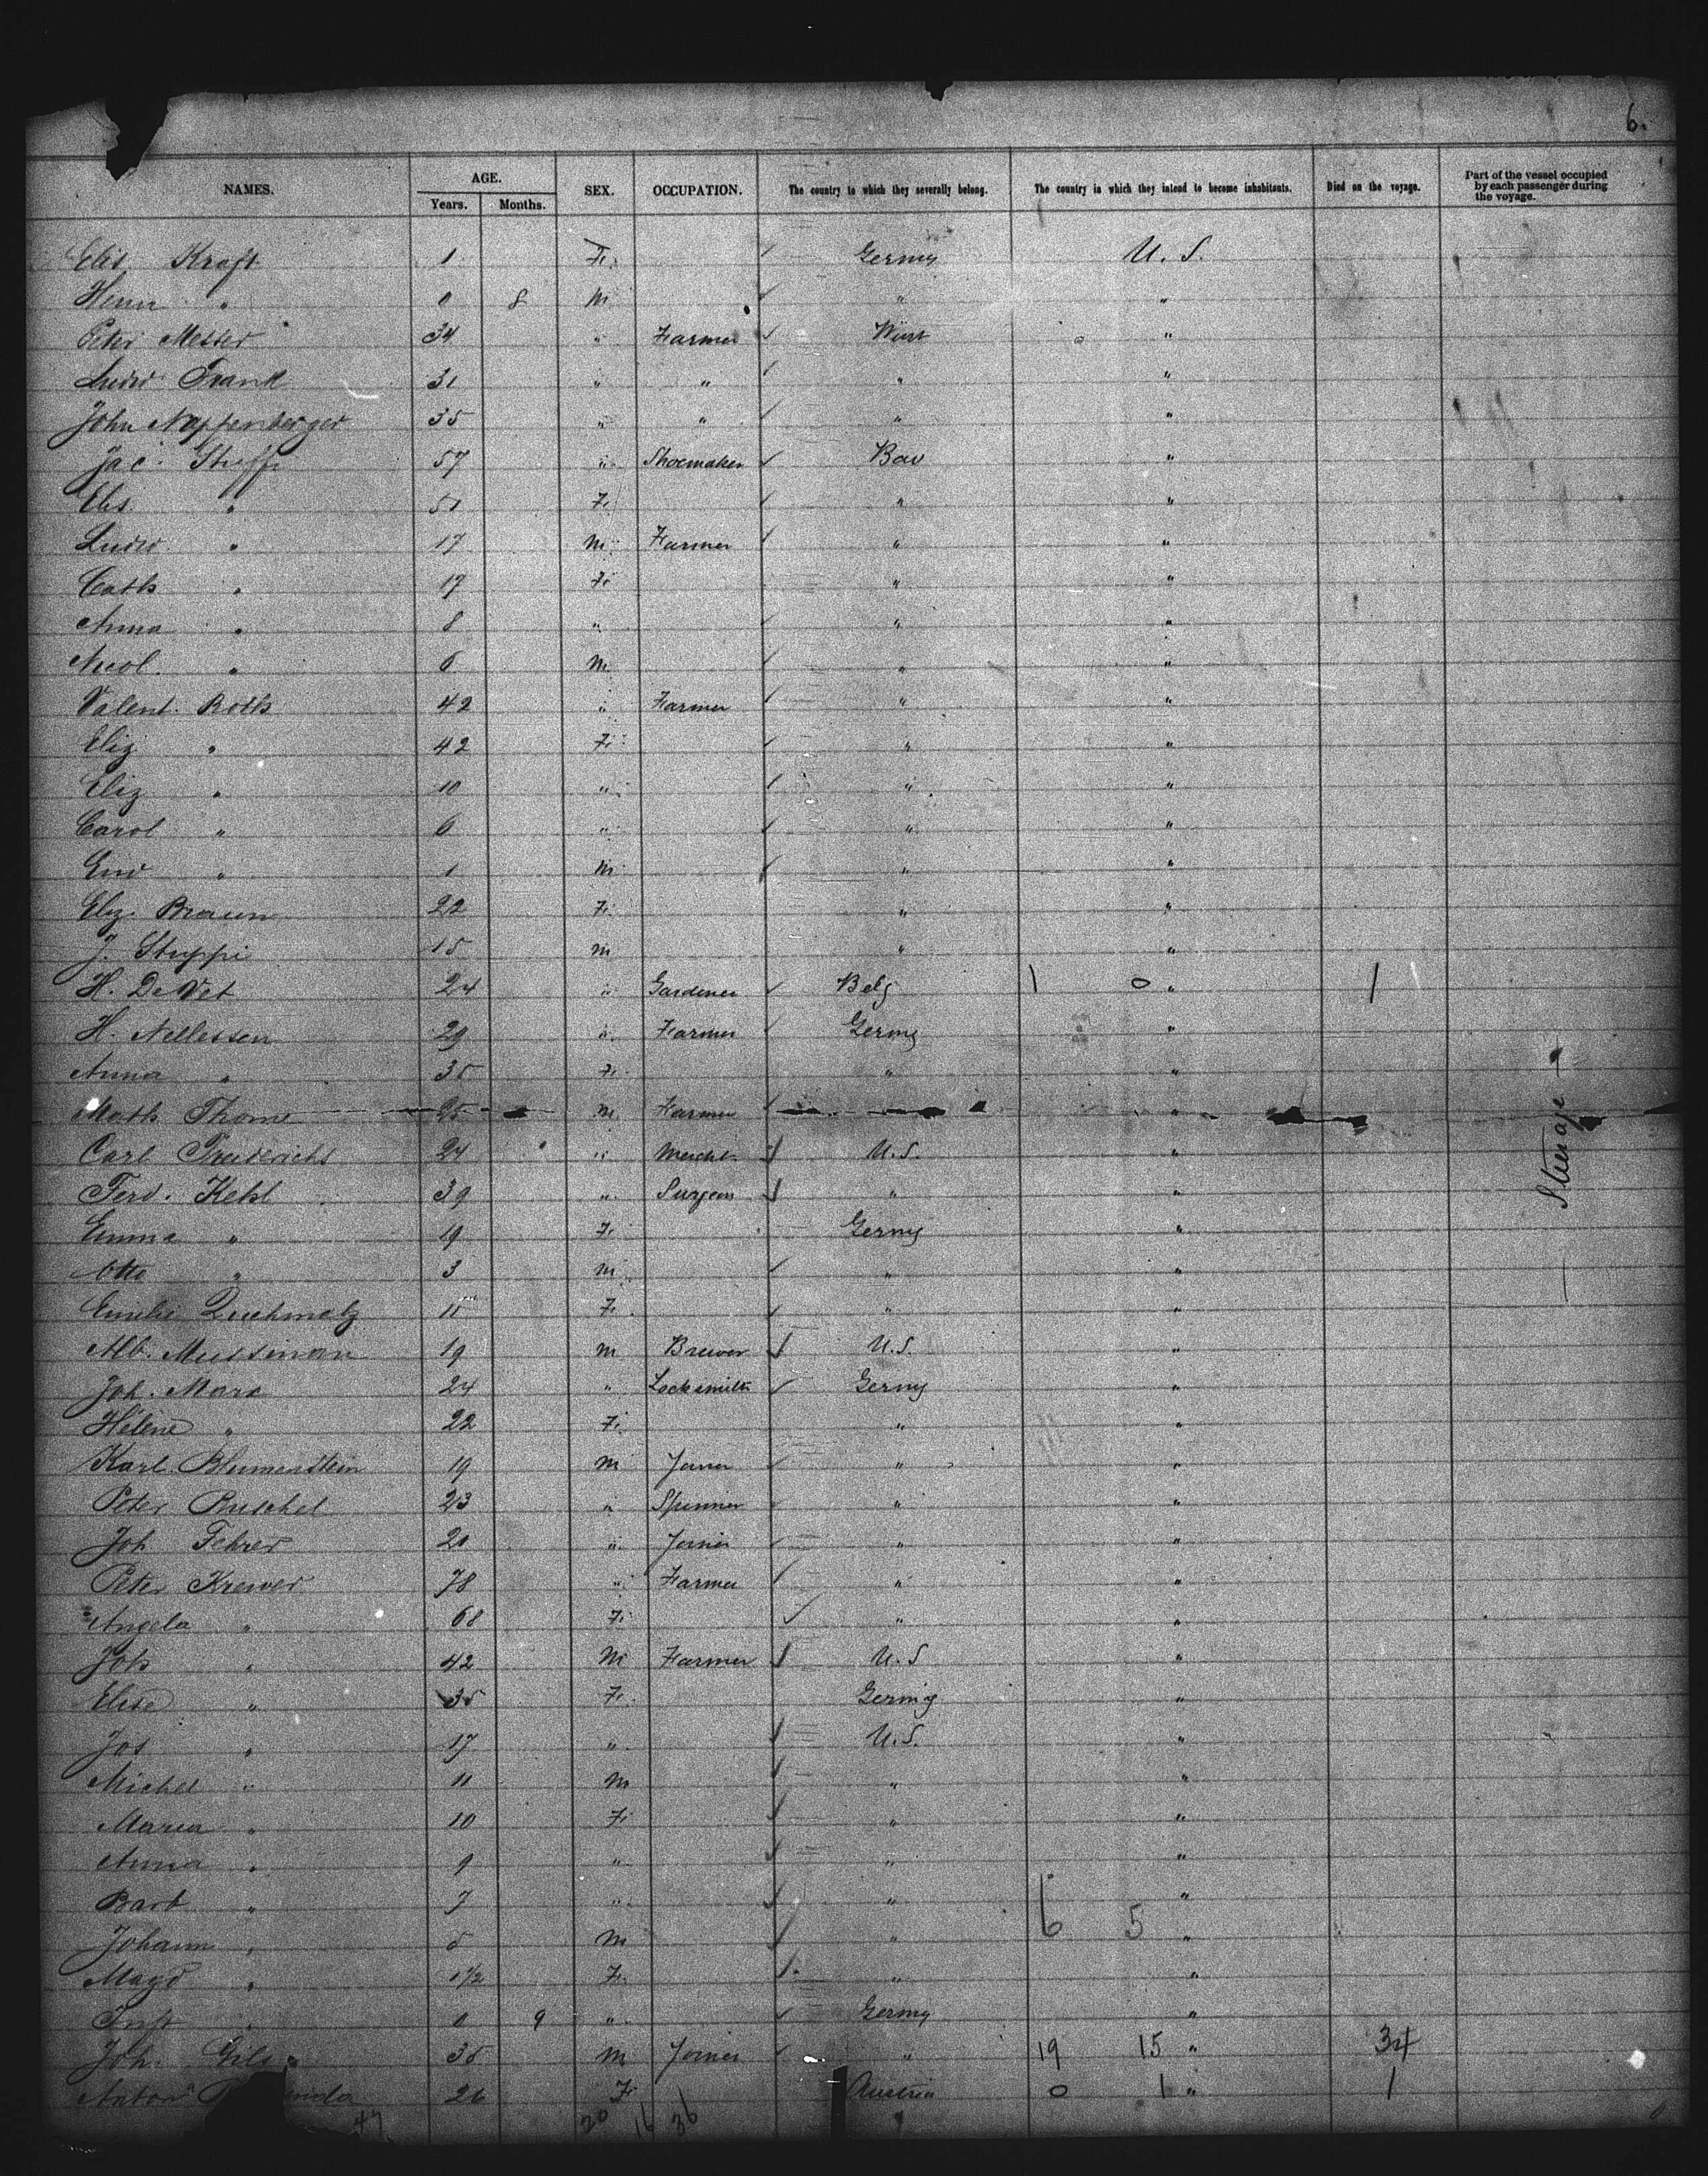 6.
NAMES. AGE. Years. Months. SEX. OCCUPATION. The country to which they severally belong. The country in which they intend to become inhabitants. Died on the voyage. Part of the vessel occupied by each passenger during the voyage.
Elis Kraft 1 F. Germy U. S.
Henr " 0 8 M " "
Peter Messer 34 " Farmer Würt "
Ludw Frank 31 " " " "
John Noffenberger 35 " " " "
Jac. 57 " Shoemaker Bav "
Elis. " 51 F. " "
Ludw " 17 M Farmer " "
Cath " 17 F. " "
Anna " 8 " " "
Nicol. " 6 M " "
Valent. Roth 42 " Farmer " "
Eliz " 42 F. " "
Eliz " 10 " " "
Carol " 6 " " "
" 1 M " "
Eliz. Braun 22 F. " "
J. Stuppi 15 M " "
H. De Vet 24 " Gardener Belg 1 0 " 1
H. Nellessen 29 " Farmer Germy "
Anna " 35 F. " "
Math Thome 25 M Farmer "
Carl Friederichs 24 " Mercht. U.S. "
Ferd. Kehl 39 " Surgeon " "
Emma " 19 F. Germy "
Otto " 3 M " "
Emilie 11 F. " "
Alb. Mussman 19 M Brewer U.S. "
Joh. Marx 24 " Locksmith Germy "
Hélène " 22 F. " "
Karl Blumenstein 19 M Joiner " "
Peter Puschel 23 " Spinner " "
Joh Fehrer 20 " Joiner " "
Peter Krewer 78 " Farmer " "
Angela " 68 F. " "
Joh " 42 M Farmer U.S "
Elise " 35 F. Germy "
Jos " 17 " U.S. "
Michel " 11 M " "
Maria " 10 F. " "
Anna " 9 " " "
Barb " 7 " " "
Johann " 5 M " 6 5 "
Magd " 1½ F. " "
Inft " 0 9 " Germy "
Joh. 35 M Joiner " 19 15 " 34
Anton 26 F. Austria 0 1 " 1
47 20 16 36
— Steerage —